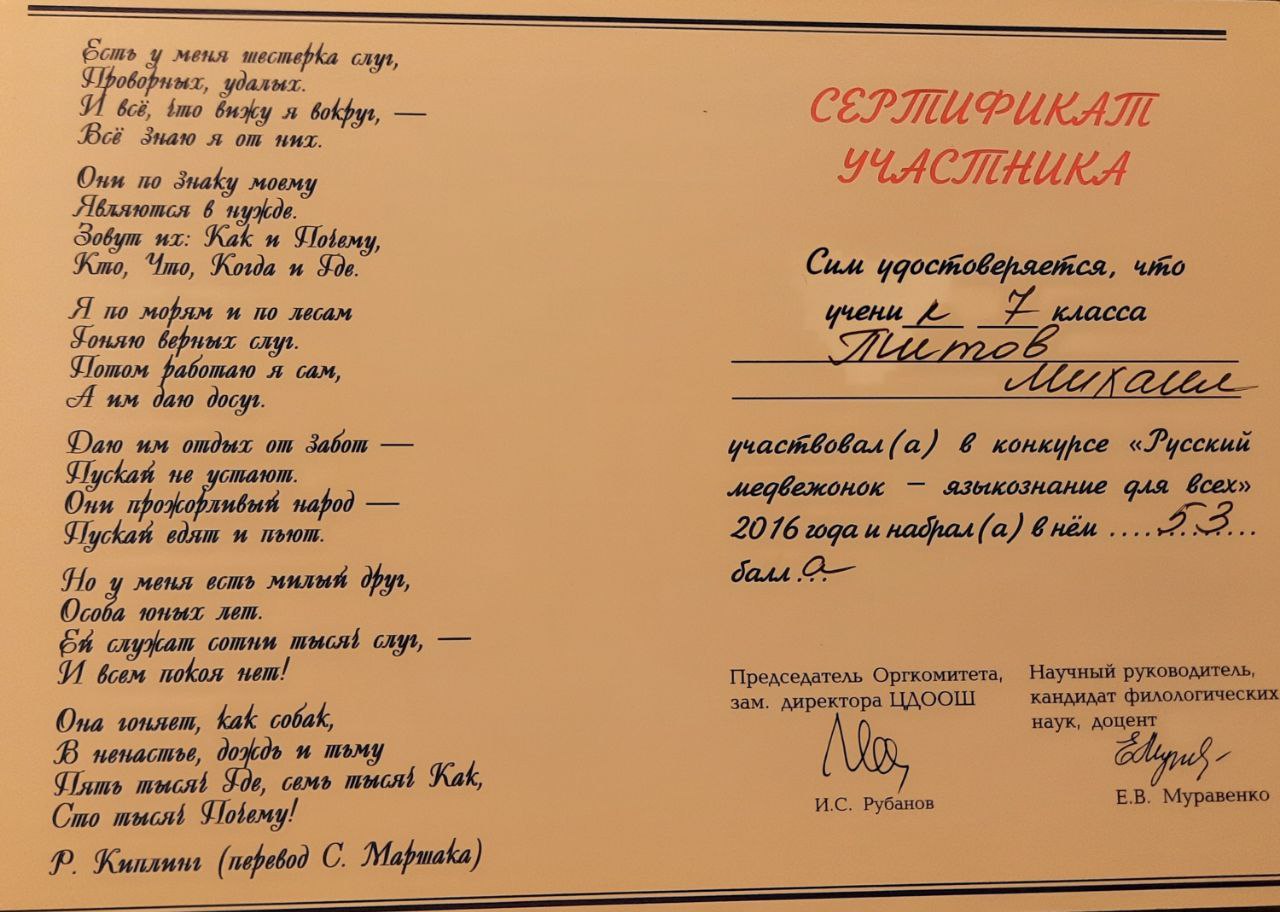 Есть у меня шестерка слуг,
Проворных, удалых.
И всё, что вижу я вокруг, —
Всё знаю я от них.
Они по знаку моему
Являются в нужде.
Зовут их: Как и Почему,
Кто, Что, Когда и Где.
Я по морям и по лесам
Гоняю верных слуг.
Потом работаю я сам,
А им даю досуг.
Даю им отдых от забот —
Пускай не устают.
Они прожорливый народ —
Пускай едят и пьют.
Но у меня есть милый друг,
Особа юных лет.
Ей служат сотни тысяч слуг, —
И всем покоя нет!
Она гоняет, как собак,
В ненастье, дождь и тьму
Пять тысяч Где, семь тысяч Как,
Сто тысяч Почему!
Р. Киплинг (перевод С. Маршака)
СЕРТИФИКАТ
УЧАСТНИКА
Сим удостоверяется, что
учени к 7 класса
Титов
Михаил
участвовал(а) в конкурсе «Русский
медвежонок – языкознание для всех»
2016 года и набрал(а) в нём ....53...
балл.а..
Председатель Оргкомитета,
зам. директора ЦДООШ
И.С. Рубанов
Научный руководитель,
кандидат филологических
наук, доцент
Е.В. Муравенко